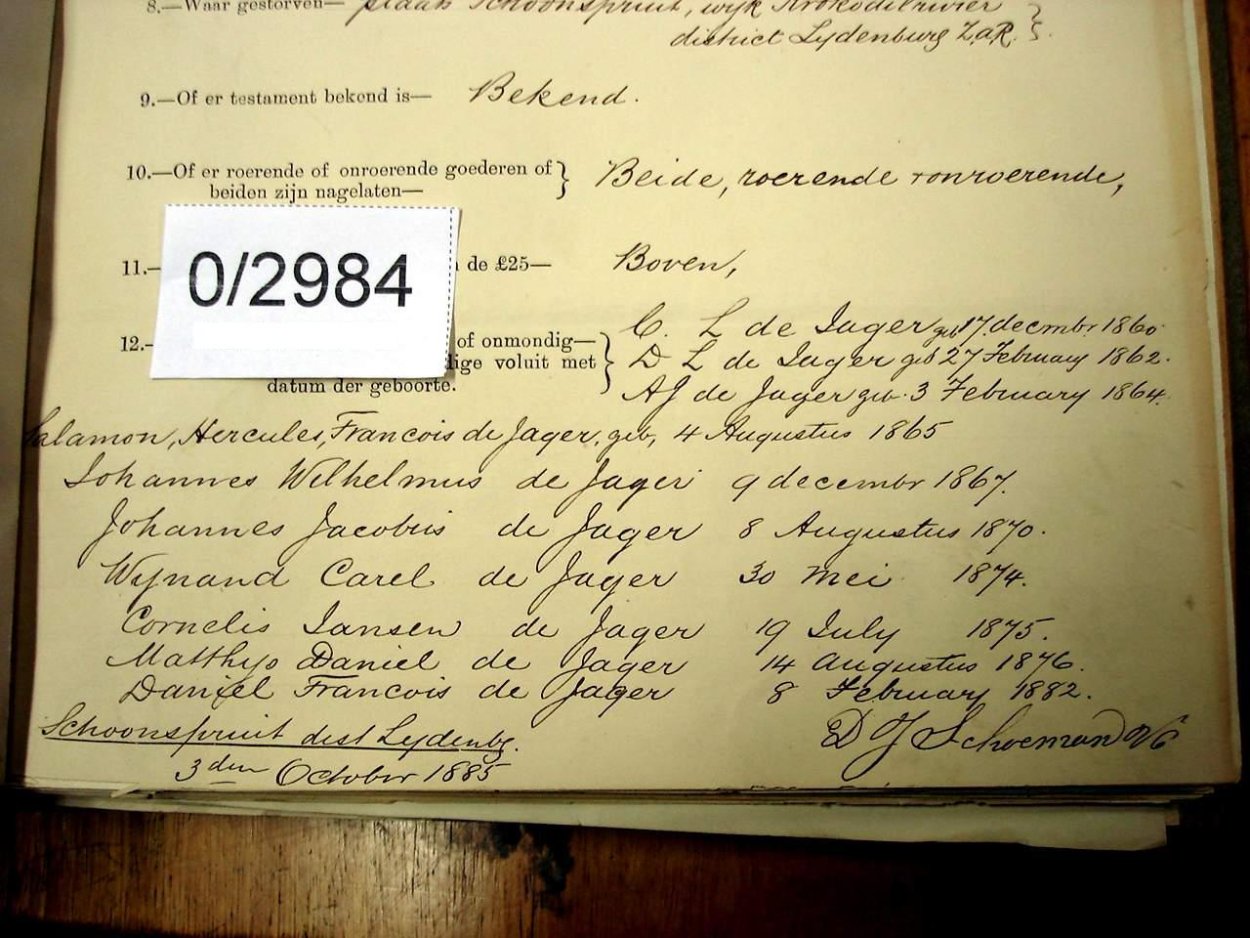 8.—Waar gestorven— plaats Schoonspruit, wijk Krokodilrivier
district Lydenburg Z.a.R.
9.—Of er testament bekend is— Bekend.
10.—Of er roerende of onroerende goederen of
beiden zijn nagelaten— Beide, roerende + onroerende,
11.— de £25— Boven,
0/2984
C. L de Jager geb 17 decmbr 1860
12.— of onmondig—
D L de Jager geb 27 February 1862.
dige voluit met
datum der geboorte.
AJ de Jager geb. 3 February 1864.
Salamon, Hercules, Francois de Jager, geb, 4 Augustus 1865
Johannes Wilhelmus de Jager 9 decembr 1867.
Johannes Jacobus de Jager 8 Augustus 1870.
Wynand Carel de Jager 30 Mei 1874.
Cornelis Jansen de Jager 19 July 1875.
Matthys Daniel de Jager 14 Augustus 1876.
Daniel Francois de Jager 8 February 1882.
Schoonspruit dist Lydenbg.
D J Schoeman VC
3den October 1885